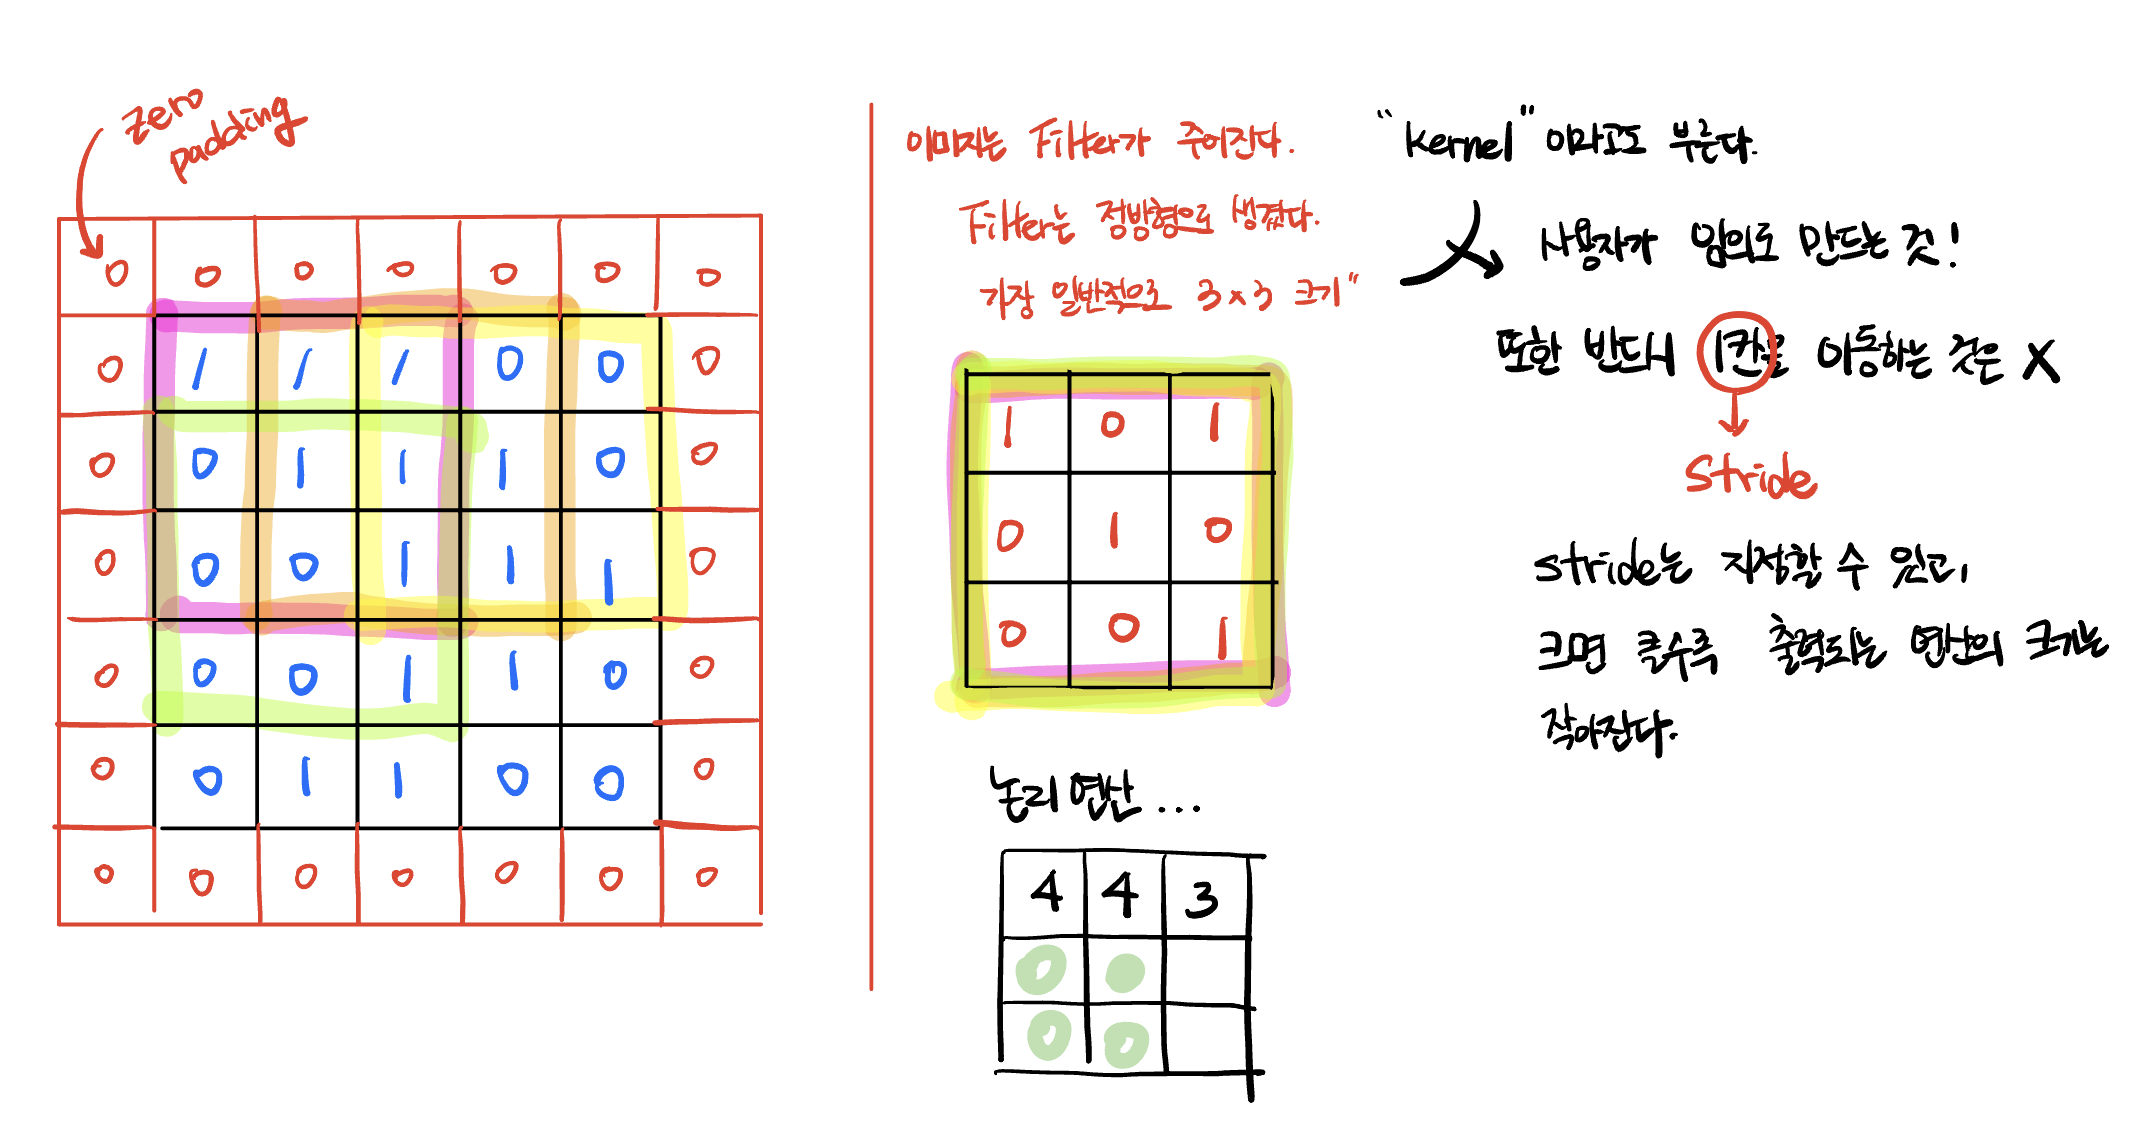 zero
padding
0 0 0 0 0 0 0
0 1 1 1 0 0 0
0 0 1 1 1 0 0
0 0 0 1 1 1 0
0 0 0 1 1 0 0
0 0 1 1 0 0 0
0 0 0 0 0 0 0
이미지는 Filter가 주어진다.
Filter는 정방형으로 생겼다.
가장 일반적으로 3x3 크기"
"Kernel" 이라고도 부른다.
사용자가 임의로 만드는 것!
또한 반드시 1칸을 이동하는 것은 X
Stride
stride는 지정할 수 있고,
크면 클수록 출력되는 연산의 크기는
작아진다.
1 0 1
0 1 0
0 0 1
논리 연산 ...
4 4 3